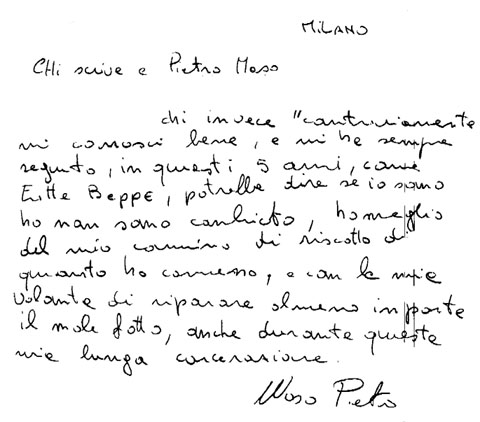 MILANO
CHi scrive e Pietro Maso
chi invece "contrariamente
mi conosci bene, e mi ha sempre
seguito, in questi 5 anni, come
Beppe, potrebbe dire se io sono
ho non sono cambiato, ho meglio
del mio cammino di riscatto di
quanto ho comesso, e con la mia
volonta di riparare almeno in parte
il male fatto, anche durante questa
mia lunga carcerazione.
Maso Pietro